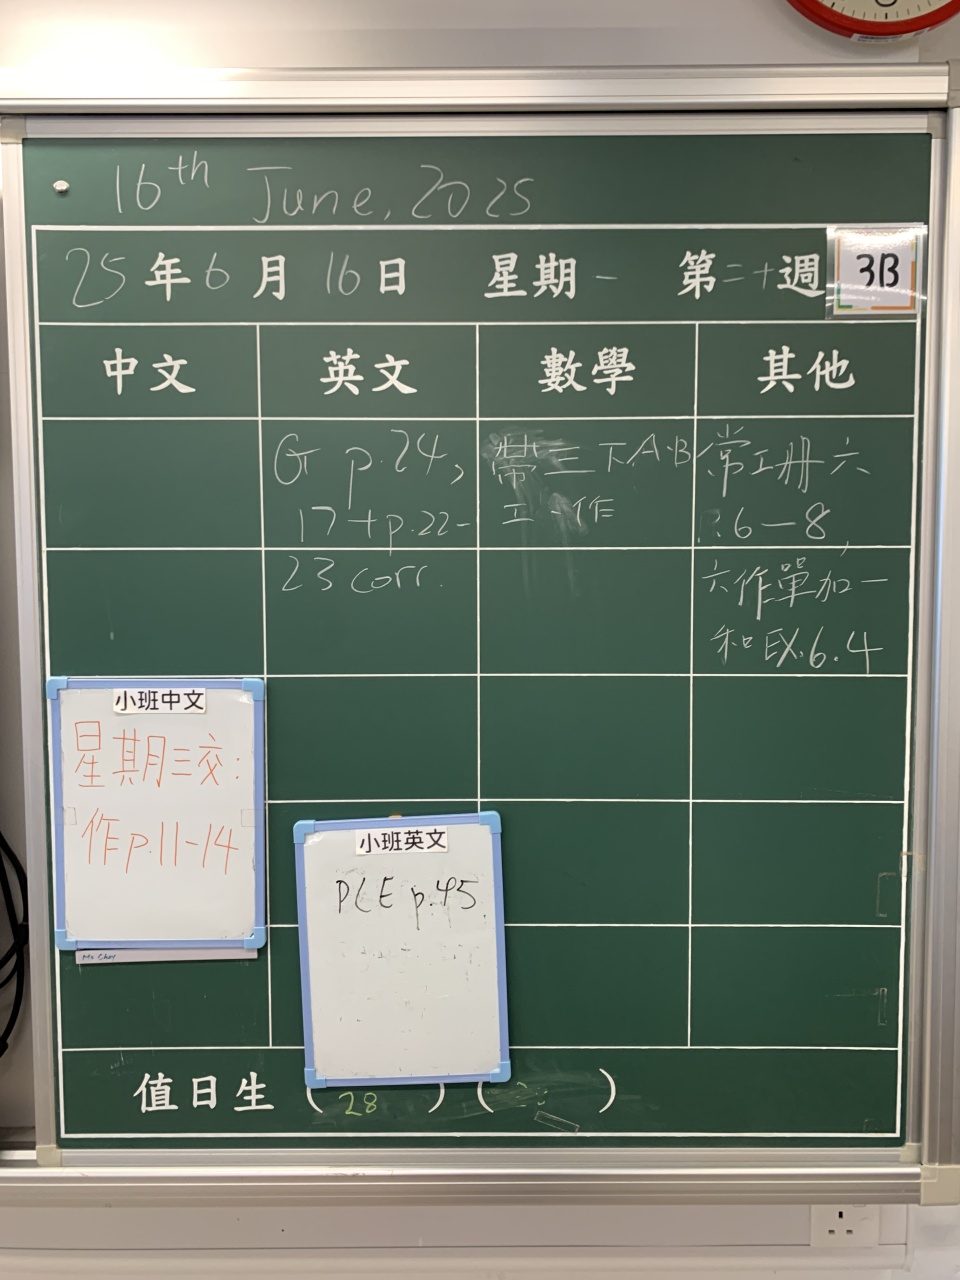 16th June, 2025
25年6月16日 星期一 第二十週 3B
中文 英文 數學 其他
G p.24,
17+p.22-
23 corr.
三下A.B
工 作
常工冊六
P.6-8,
六作單加一
和EX.6.4
小班中文
星期三交:
作p.11-14
小班英文
PLE p.45
值日生 ( 28 ) ( )